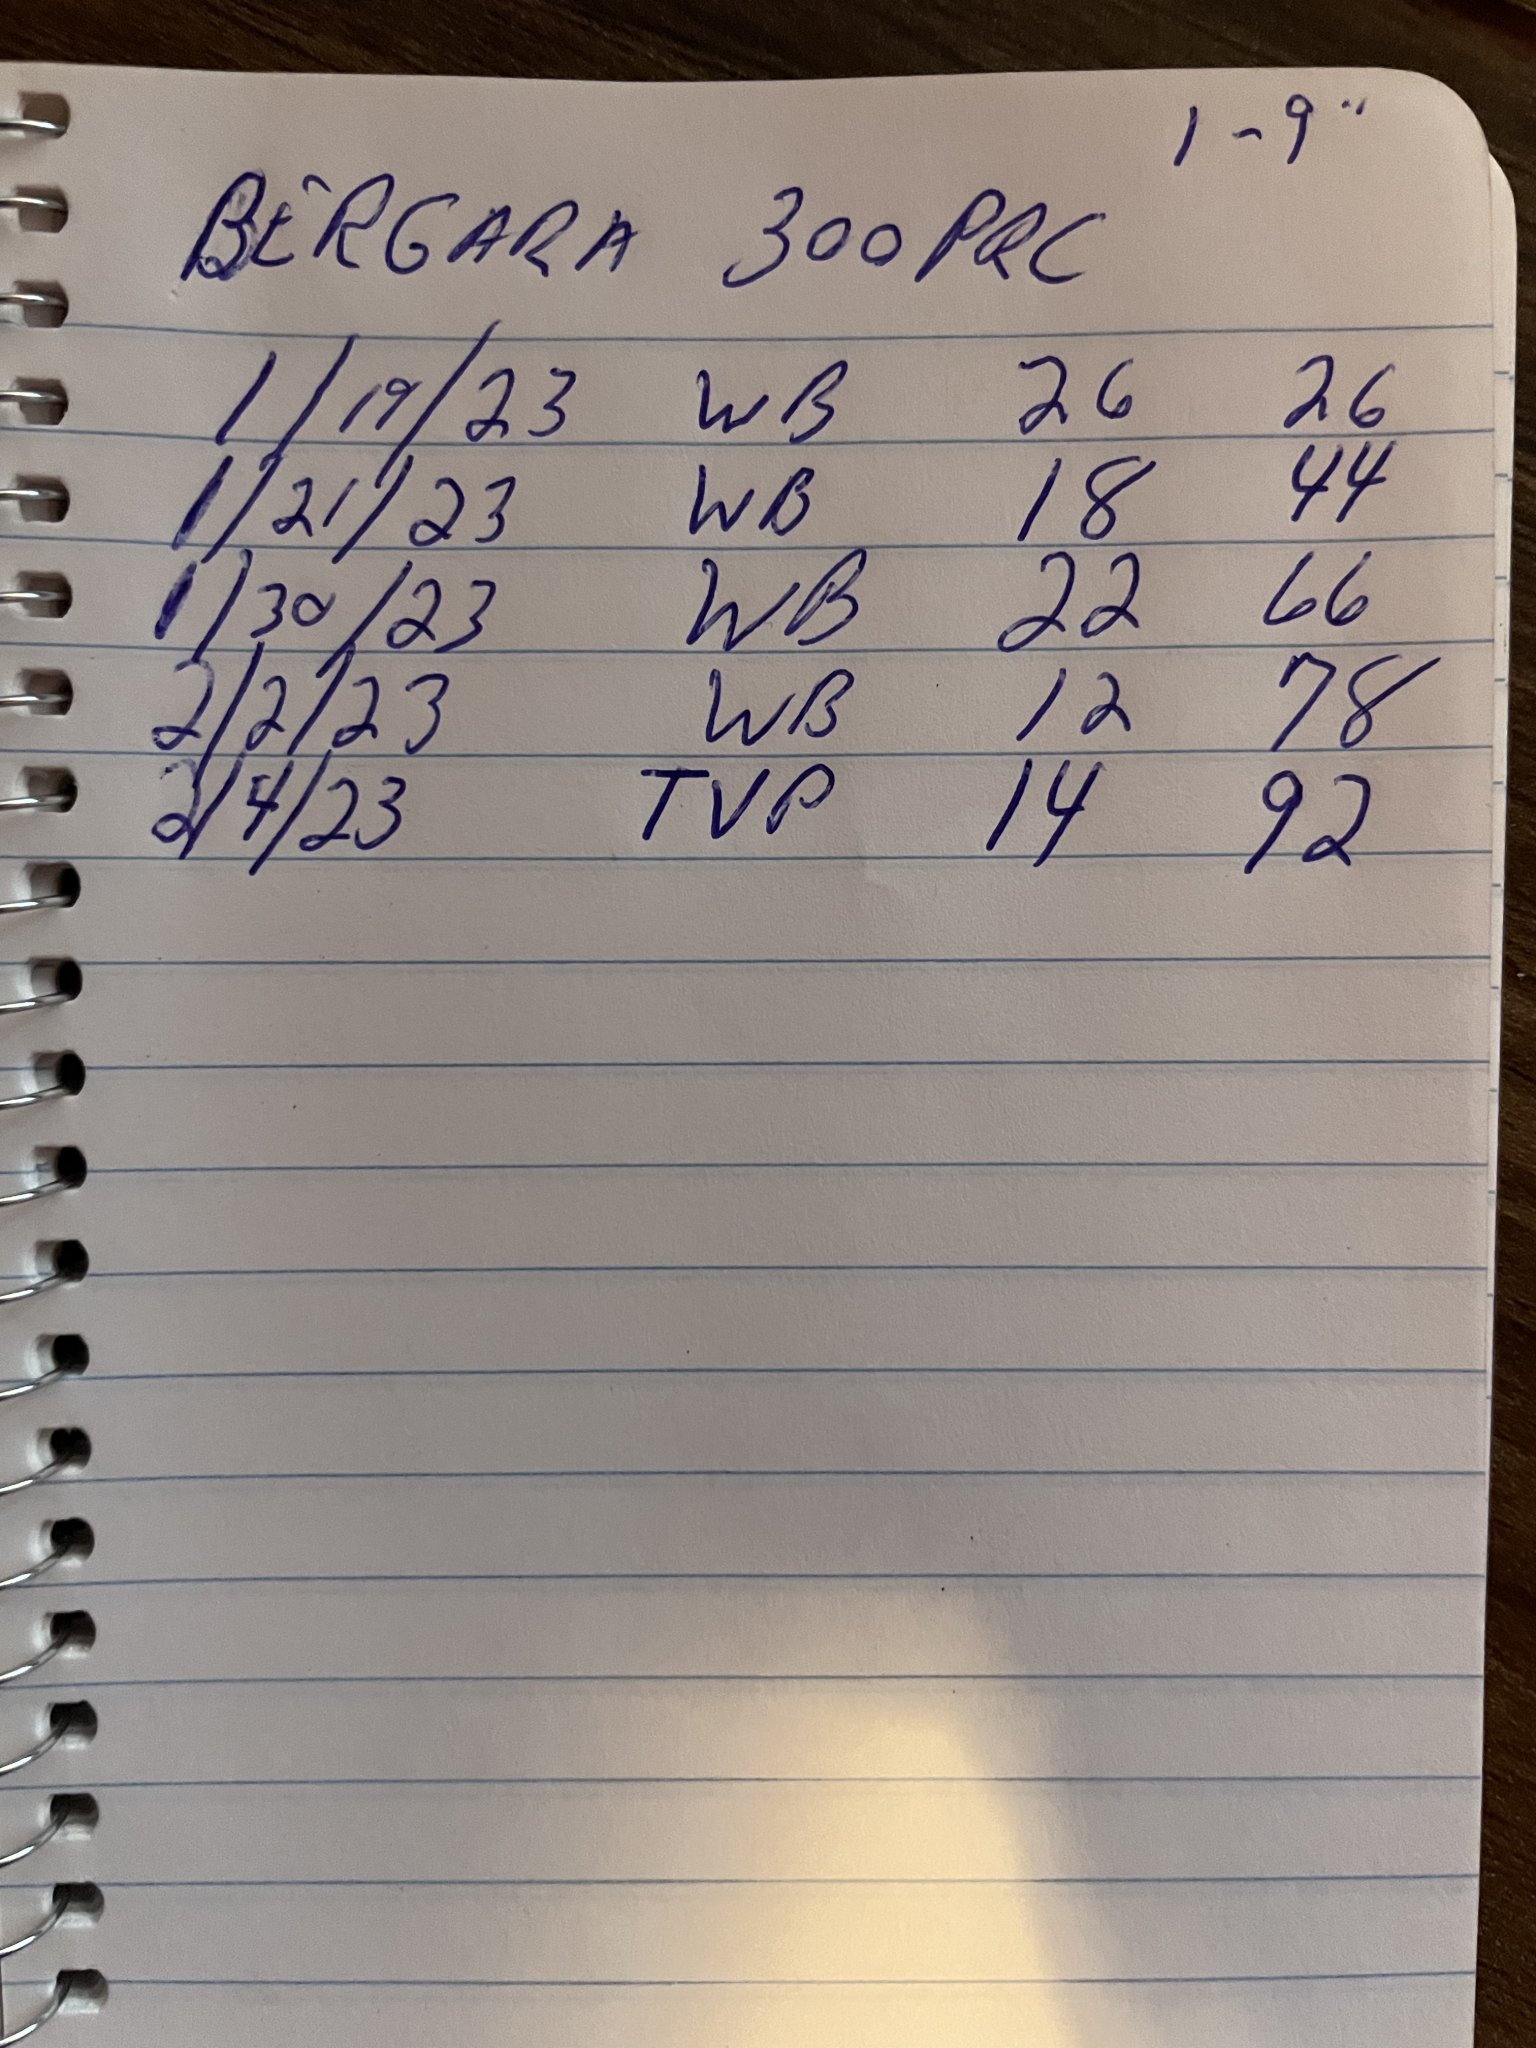 1-9"
BERGARA 300 PRC
1/19/23 WB 26 26
1/21/23 WB 18 44
1/30/23 WB 22 66
2/2/23 WB 12 78
2/4/23 TVP 14 92